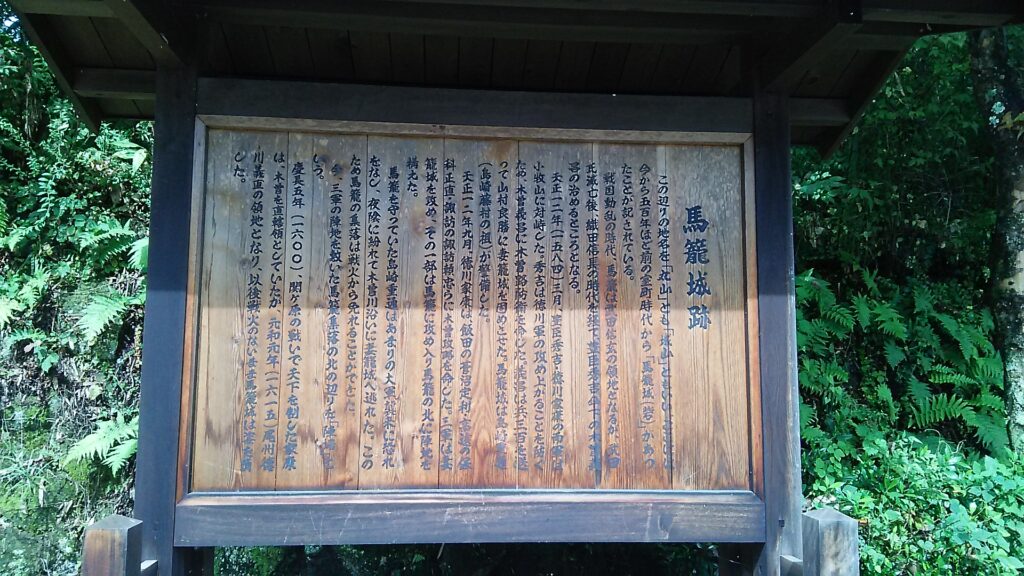 馬籠城跡
この辺りの地名を「丸山」とも「城山」ともいい、ここには
今から五百年ほど前の室町時代から「馬籠城(砦)」があっ
たことが記されている。
戦国動乱の時代、馬籠は
氏滅亡後、織田信長の時代を経て、豊臣秀吉傘下の木曽義
昌の治めるところとなる。
天正一二年(一五八四)三月、豊臣秀吉・徳川家康の両軍は
小牧山に対峙した。秀吉は徳川軍の攻め上がることを防ぐ
ため、木曽義昌に木曽路防衛を命じた。義昌は兵三百を送
って山村良勝に妻籠城を固めさせた。馬籠城は島崎重通
(島崎藤村の祖)が警備した。
天正一二年九月、徳川家康は、飯田の菅沼定利・高遠の保
科正直・諏訪の諏訪頼忠らに木曽攻略を命じた。三軍は妻
籠城を攻め、その一部は馬籠に攻め入り、馬籠の北に陣地を
構えた。
馬籠を守っていた島崎重通はあまりの大軍襲来に恐れ
をなし、夜陰に紛れて木曽川沿いに妻籠城へ逃れた。この
ため馬籠の集落は戦火から免れることができた。
今、三軍の陣地を敷いた馬籠集落の北の辺りを「陣場」とい
う。
慶長五年(一六〇〇)、関ヶ原の戦いで天下を制した家康
は、木曽を直轄領としていたが、元和元年(一六一五)尾州徳
川義直の領地となり、以後戦火のないまま馬籠城は姿を消
した。